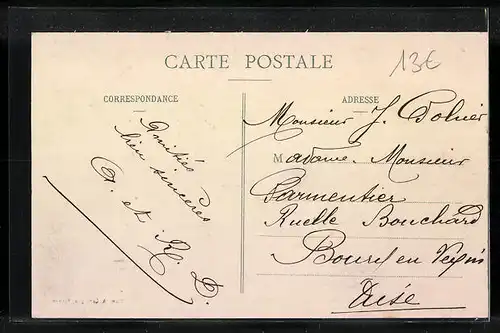 CARTE POSTALE
13€
CORRESPONDANCE
Amitiés
bien sincères
A. et R. D.
ADRESSE
Monsieur J.
Madame Monsieur
Parmentier
Ruelle Bouchard
Bourg en